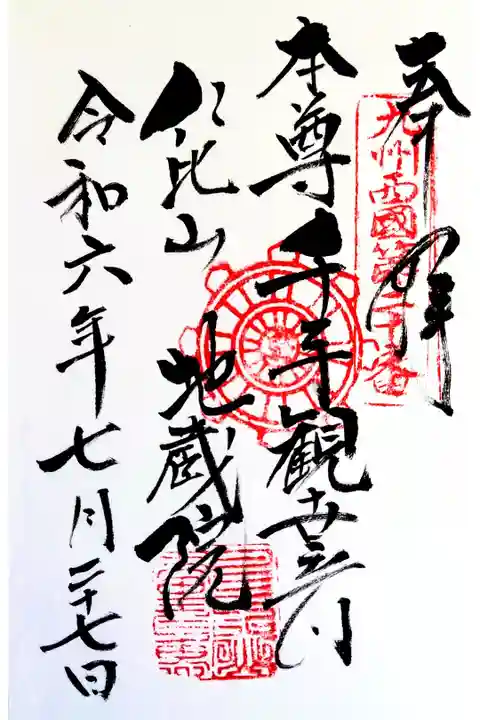 奉拝
九州西國第二十番
本尊千手観世音
仁比山 地蔵院
令和六年七月二十七日